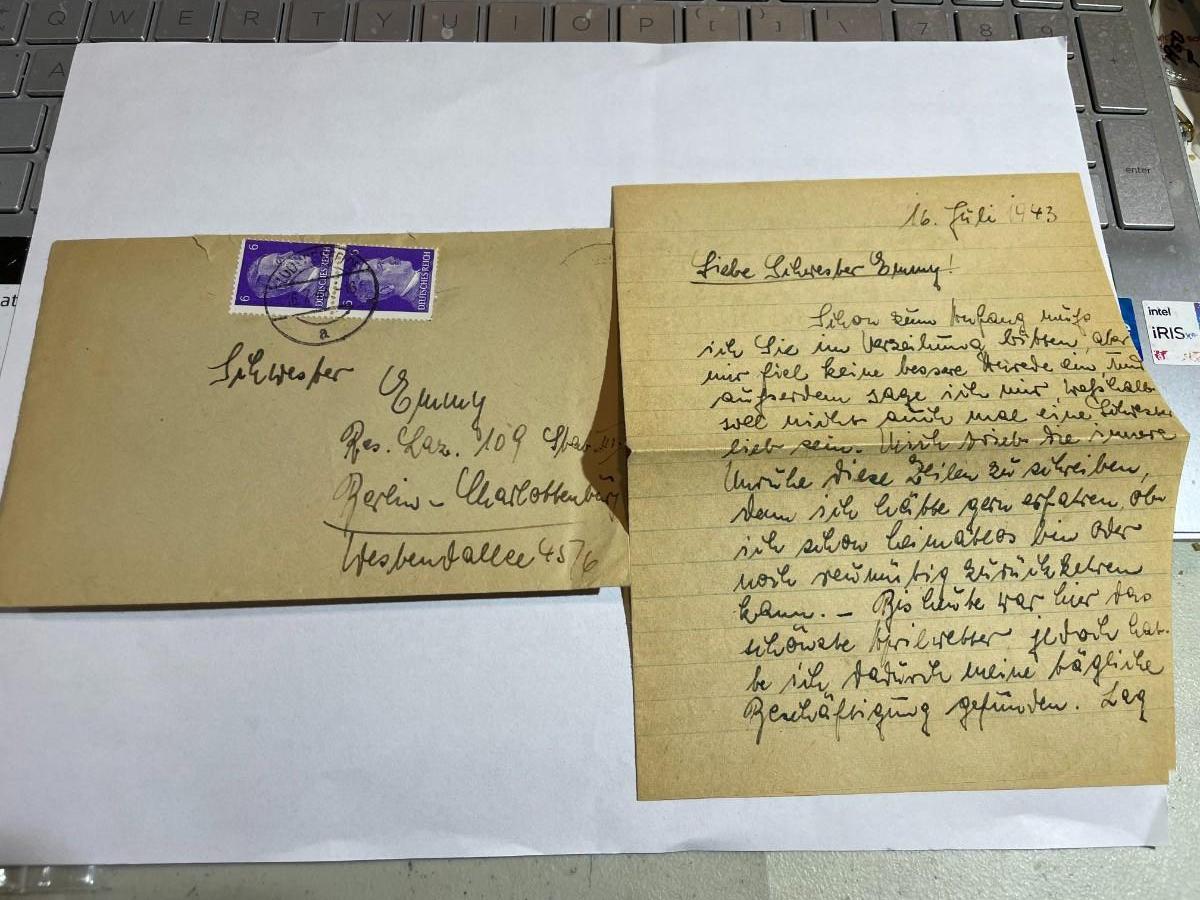 Q W E R T Y U I O P { [ } ] | \ 7 8 9
A
enter
at
intel
iRIS
6 6
DEUTSCHES REICH
DEUTSCHES REICH
a
Schwester
Emmy
Res. Laz. 109
Berlin – Charlottenburg
Westendallee 45/6
16. Juli 1943
Liebe Schwester Emmy!
Schon zum Anfang muß
ich Sie im Verzeihung bitten, aber
mir fiel keine bessere Anrede ein, und
außerdem sage ich mir, weßhalb
soll nicht auch mal eine Schwester
lieb sein. Mich trieb die innere
Unruhe diese Zeilen zu schreiben,
denn ich hätte gern erfahren, ob
ich schon heimatlos bin oder
noch reumütig zurückkehren
kann. – Bis heute war hier das
schönste Aprilwetter jedoch hat-
be ich dadurch meine tägliche
Beschäftigung gefunden. Lag